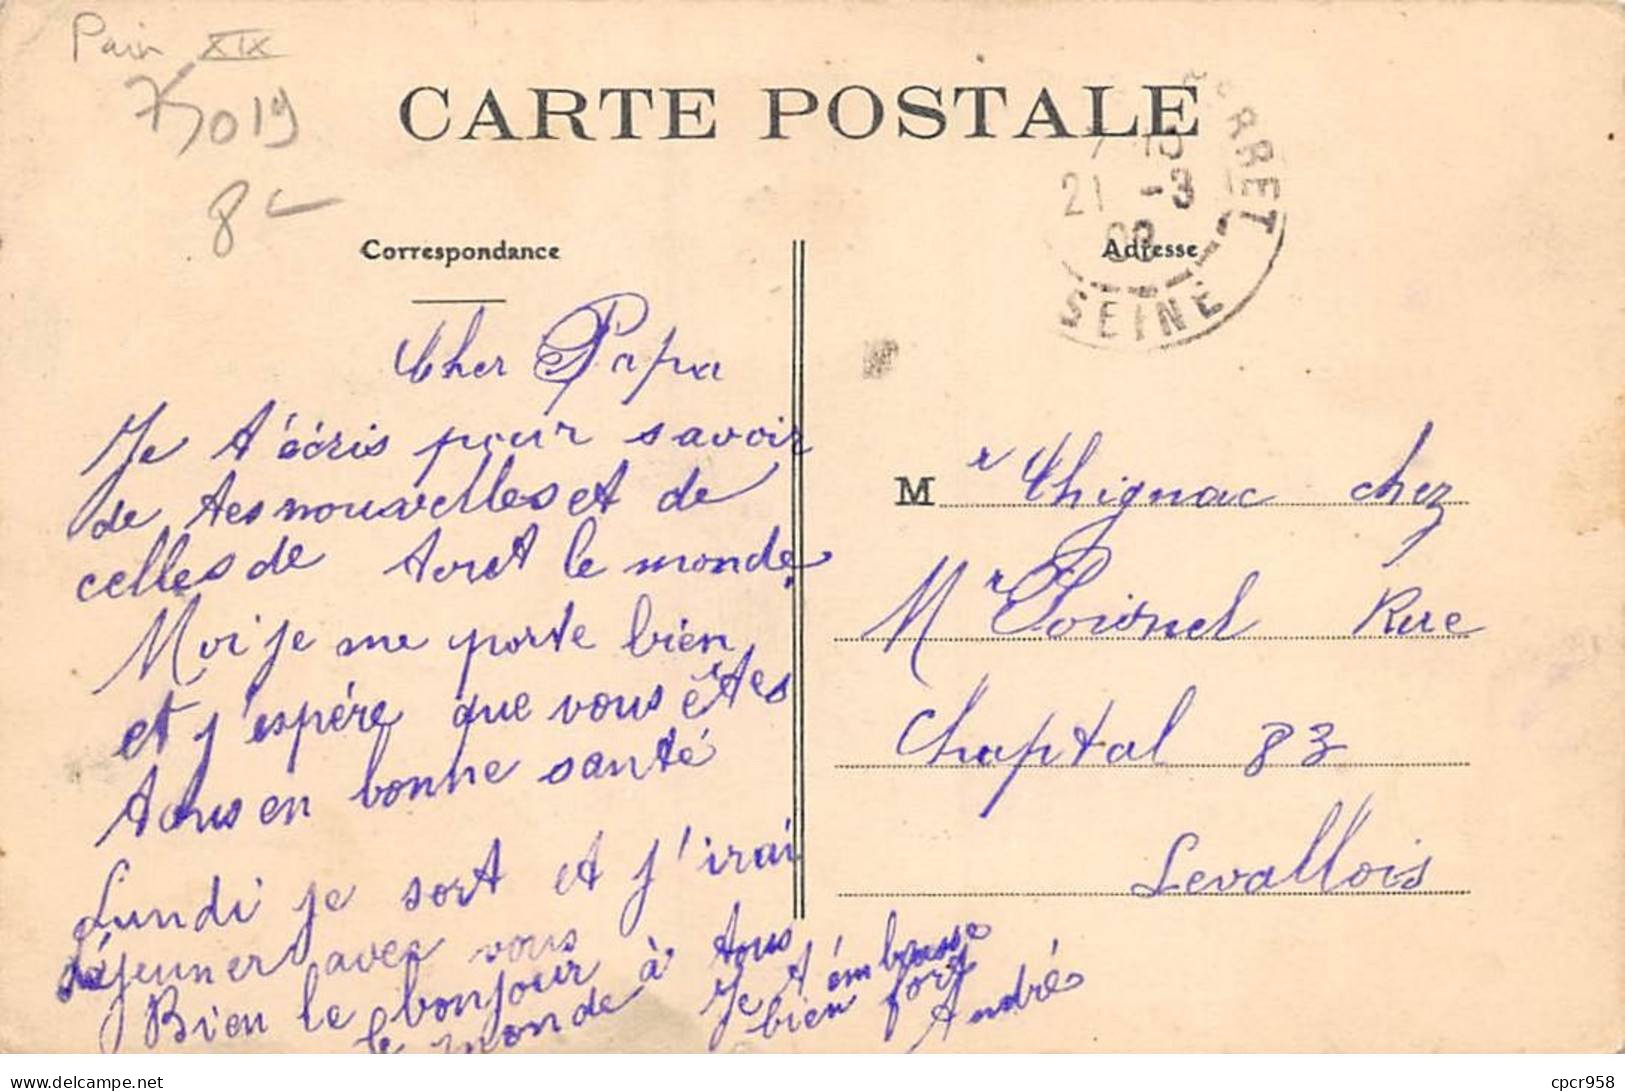 Paris XIX
75019
8
CARTE POSTALE
RRET
21 -3
08
SEINE
Correspondance
Adresse
Cher Papa
Je t'écris pour savoir
de tes nouvelles et de
celles de tout le monde.
Moi je me porte bien
et j'espére que vous êtes
tous en bonne santé
Lundi je sort et j'irai
déjeuner avec vous
Bien le bonjour à tous
le monde
Je t'émbrasse
bien fort
André
Mr Chignac chez
Mr Poisnel Rue
Chaptal 83
Levallois
delcampe.net
cpcr958